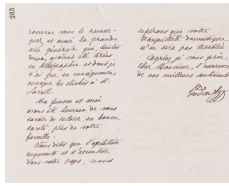 283
comme vous le remar-
quez, et aussi la grande
vue générale qui, seule,
peut, avait été tirée
en
et dont je
n'ai pu, en conséquence,
envoyer les clichés à M.
Ma femme et moi
avons été heureux de vous
savoir de retour, en bonne
santé, près de votre
famille.
Vous dites que l'agitation
augmente et s'accentue
dans votre pays, nous
espérons que votre
tranquillité domestique
n'en sera pas troublée.
Agréez, je vous prie,
cher Monsieur, l'assurance
de nos meilleurs sentiments